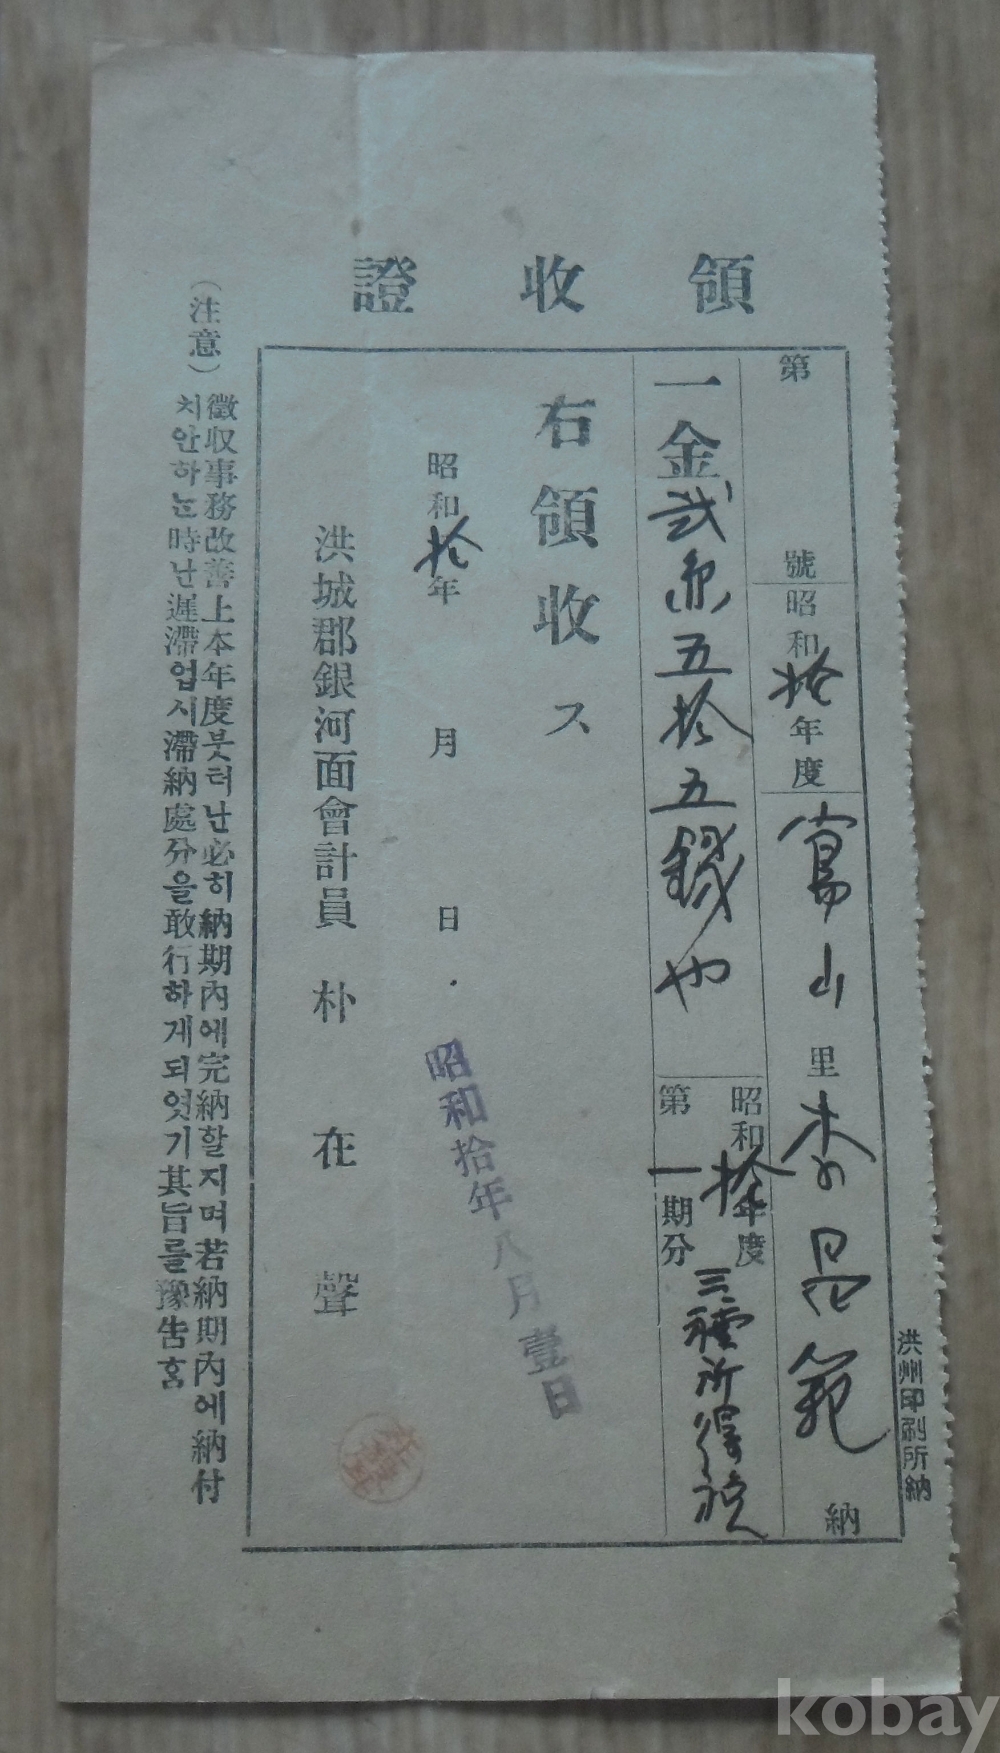 領收證
第 號
昭和拾年度
富山里 李昌範 納
一金貳円五拾五錢也
昭和拾年度
第一期分
三種所得税
右領收ス
昭和拾年 月 日
昭和拾年八月壹日
洪城郡銀河面會計員 朴在聲
(注意)
徵収事務改善上本年度붓터난必히納期內에完納할지며若納期內에納付
치안하난時난遲滯업시滯納處分을敢行하게되엿기其旨를豫告홈
洪州印刷所納
kobay